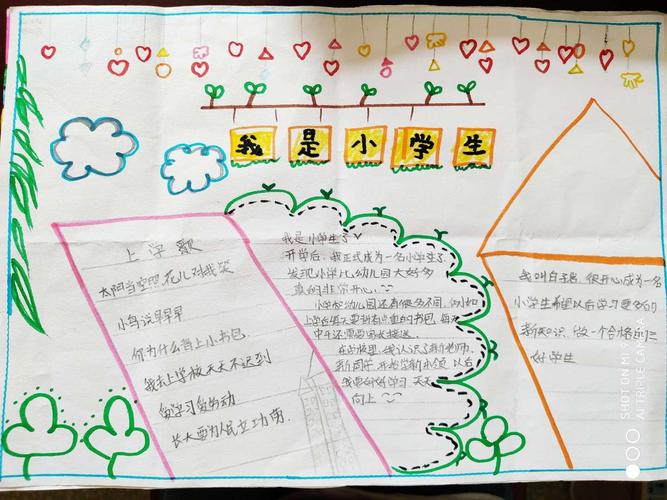 我是小学生
上学歌
太阳当空照,花儿对我笑
小鸟说早早早
你为什么背上小书包
我去上学校天天不迟到
爱学习爱劳动
长大要为人民立功劳.
我是小学生了
开学后,我正式成为一名小学生了
发现小学比幼儿园大好多
真的非常开心
小学和幼儿园还有很多不同,
上学每天要背有点重的书包,每天
中午还需要家长接送.
在学校里,我认识了新老师,
新同学 以后
我要好好学习 天天
向上
我叫白子 很开心成为一名
小学生希望以后学习更多的
新知识.做一个合格的三
好学生
SHOT ON MI 9
AI TRIPLE CAMERA